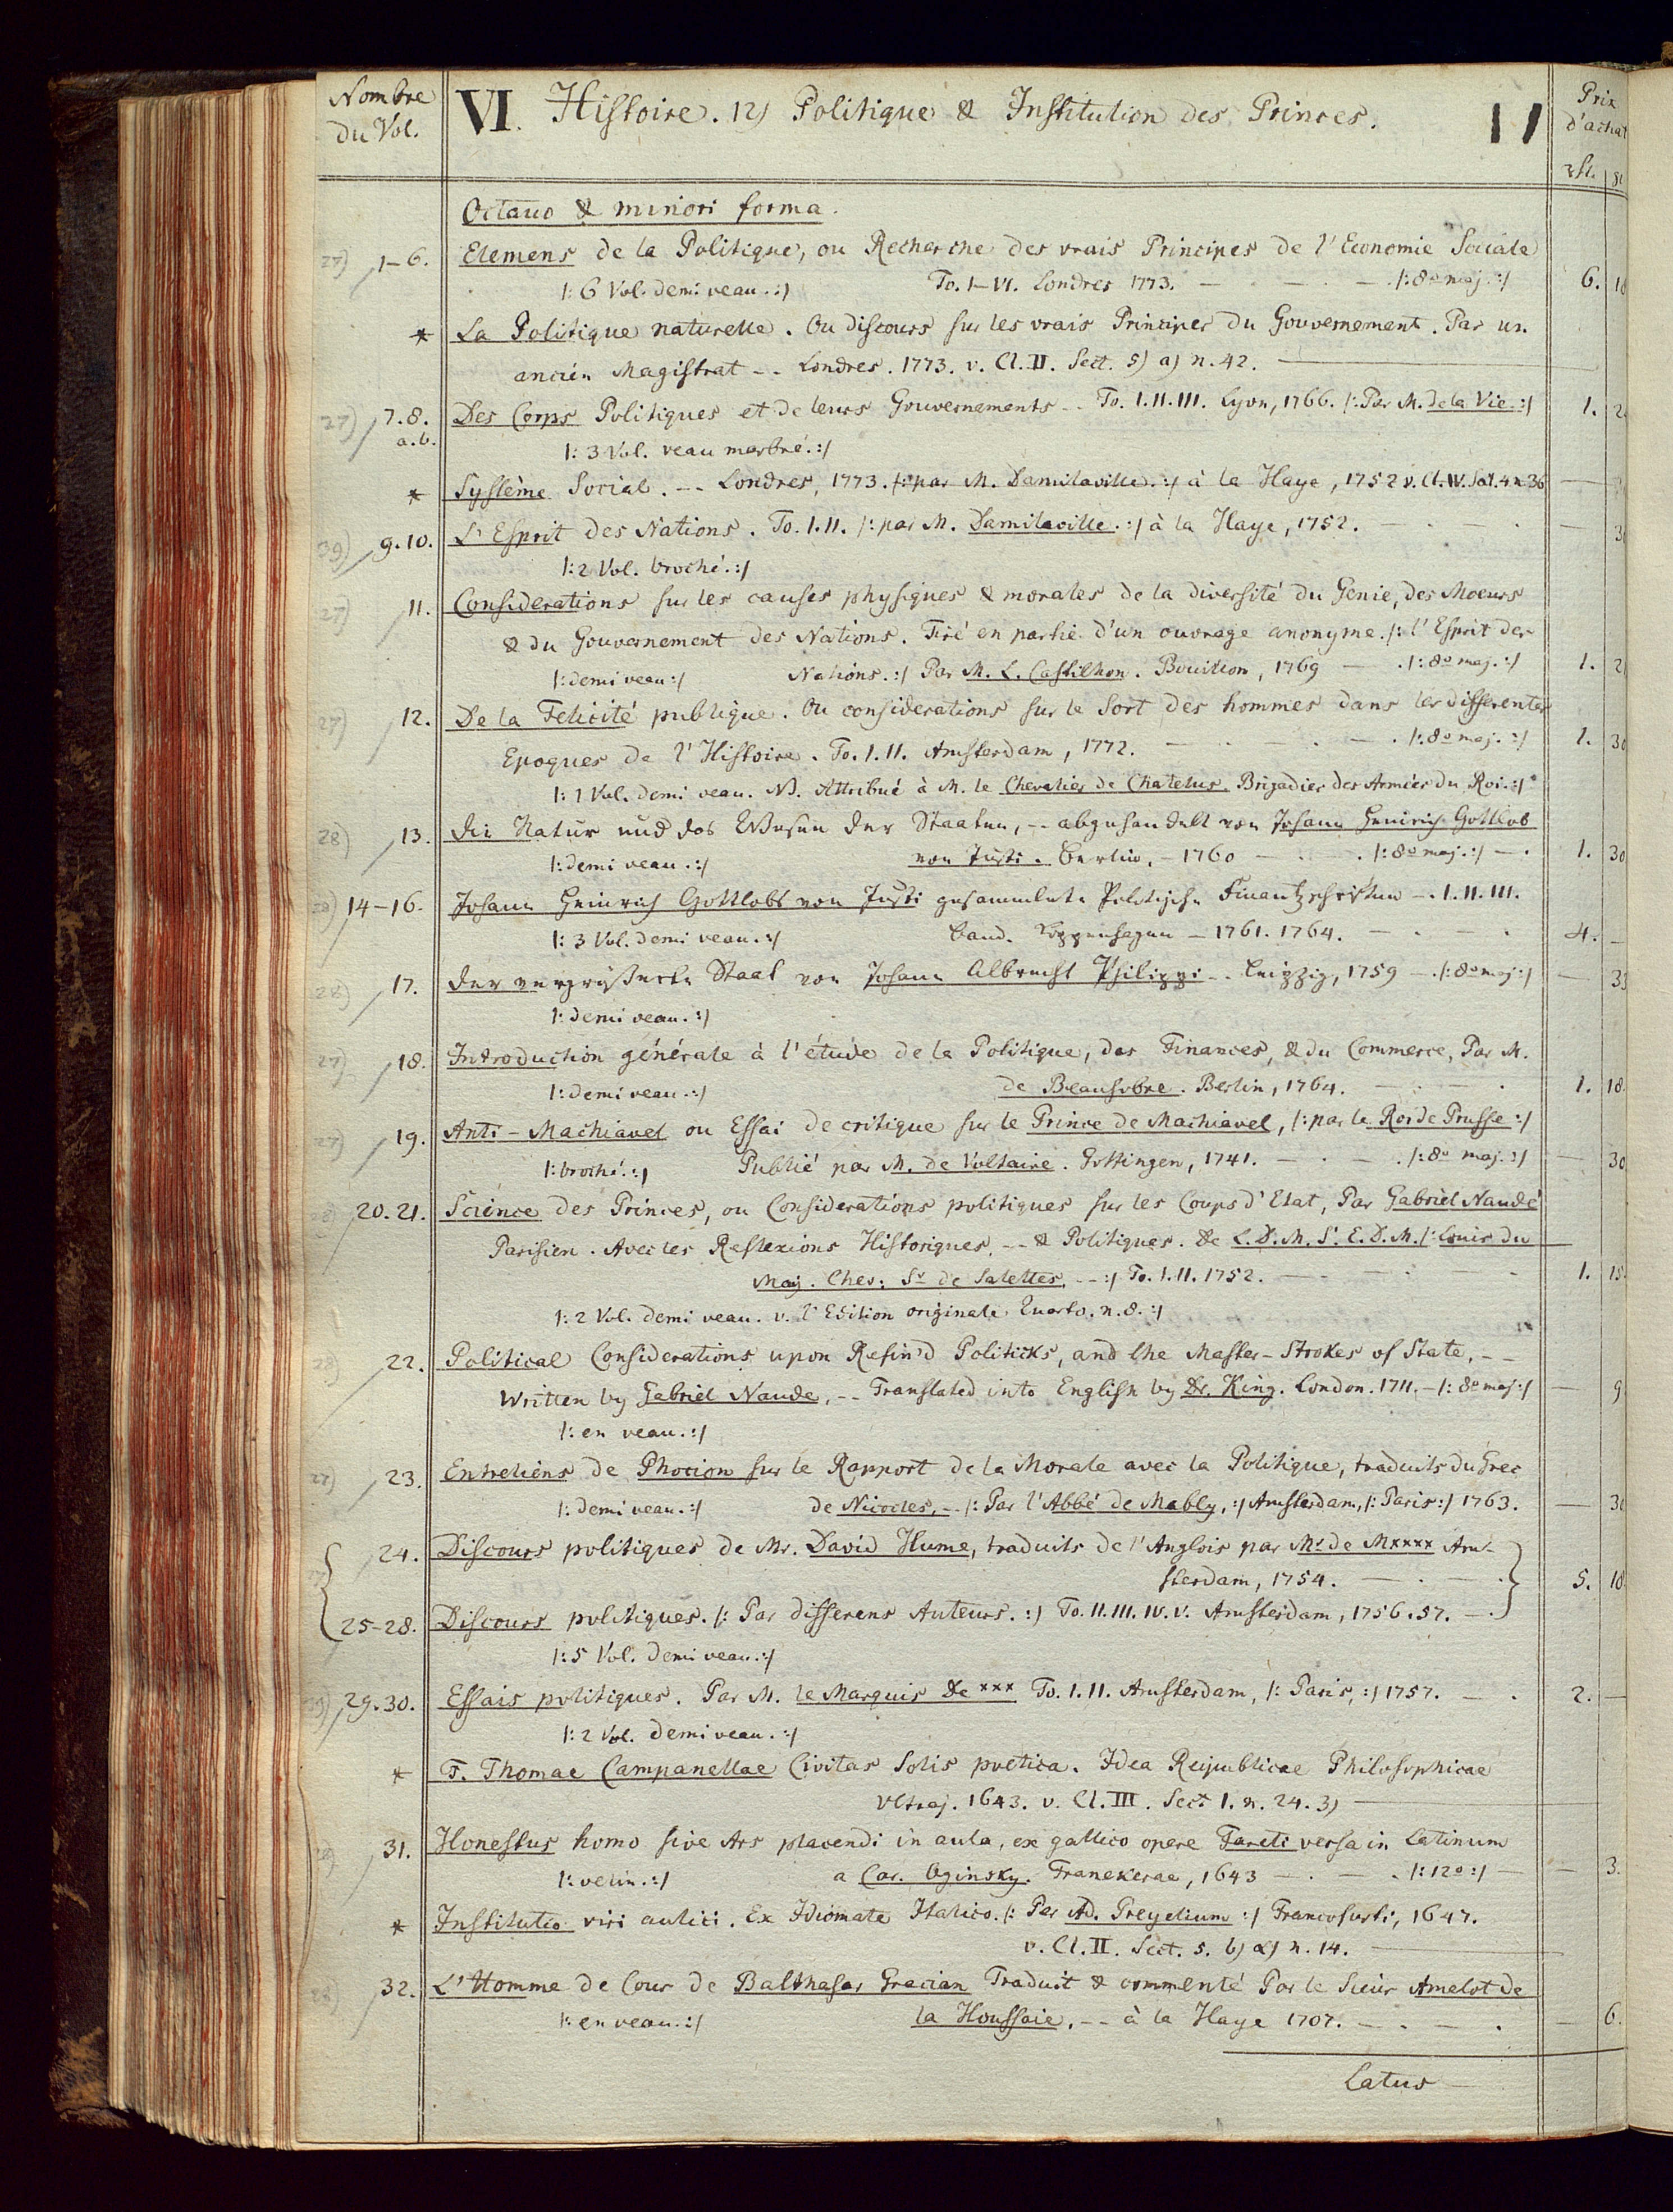 Nombre
du Vol.
VI. Histoire. 12) Politique & Institution des Princes. 11
Prix
d'achat
Octavo & minori forma.
27) 1-6. Elemens de la Politique, ou Recherche des vrais Principes de l'Economie Sociale
/: 6 Vol. demi veau. :/ To. I-VI. Londres 1773. — /: 8º maj. :/ 6.
* La Politique naturelle. Ou discours sur les vrais Principes du Gouvernement. Par un
ancien Magistrat -- Londres. 1773. v. Cl. II. Sect. 5) a) n. 42. —
27) 7.8. a.b. Des Corps Politiques et de leurs Gouvernements -- To. I. II. III. Lyon, 1766. /: Par M. de la Vie. :/ 1.
/: 3 Vol. veau marbré. :/
* Système Social. -- Londres, 1773. /: par M. Damilaville. :/ à la Haye, 1752 v. Cl. IV. Sect. 4 n 36 —
39) 9.10. L'Esprit des Nations. To. I. II. /: par M. Damilaville. :/ à la Haye, 1752. —
/: 2 Vol. broché. :/
27) 11. Considerations sur les causes physiques & morales de la diversité du Genie, des Moeurs
& du Gouvernement des Nations. Tiré en partie d'un ouvrage anonyme. /: l'Esprit des
/: demi veau :/ Nations. :/ Par M. L. Castilhon. Bouillon, 1769 — /: 8º maj. :/ 1.
27) 12. De la Felicité publique. Ou considerations sur le Sort des hommes dans les differentes
Epoques de l'Histoire. To. I. II. Amsterdam, 1772. — /: 8º maj. :/ 1. 30
/: 1 Vol. demi veau. NB. Attribué à M. le Chevalier de Chatelus. Brigadier des Armées du Roi. :/
28) 13. Die Natur und das Wesen der Staaten, -- abgehandelt von Johann Heinrich Gottlob
/: demi veau. :/ von Justi. Berlin, - 1760 — /: 8º maj. :/ — 1. 30
28) 14-16. Johann Heinrich Gottlobs von Justi gesammlete Politische Finantzschriften -. I. II. III.
/: 3 Vol. demi veau. :/ Band. Koppenhagen - 1761. 1764. — 4. —
28) 17. Der vergrößerte Staat von Johann Albrecht Philippi -- Leipzig, 1759 — /: 8º maj :/ — 33
/: demi veau. :/
27) 18. Introduction générale à l'étude de la Politique, des Finances, & du Commerce, Par M.
/: demi veau. :/ de Beausobre. Berlin, 1764. — 1. 18.
27) 19. Anti-Machiavel ou Essai de critique sur le Prince de Machiavel, /: par le Roi de Prusse :/
/: broché. :/ Publié par M. de Voltaire. Gottingen, 1741. — /: 8º maj. :/ — 30
20. 21. Science des Princes, ou Considerations politiques sur les Coups d'Etat, Par Gabriel Naudé
Parisien. Avec les Reflexions Historiques, -- & Politiques. De L. D. M. S. E. D. M. /: Louis du
May. Chev: Sr de Salettes, -- :/ To. I. II. 1752. — 1. 15.
/: 2 Vol. demi veau. v. l'Edition originale Quarto. n. 8. :/
28) 22. Political Considerations upon Refin'd Politicks, and the Master-Strokes of State. --
Written by Gabriel Naude, -- Translated into English by Dr. King. London. 1711. - /: 8º maj :/ — 9
/: en veau. :/
27) 23. Entretiens de Phocion sur le Rapport de la Morale avec la Politique, traduits du Grec
/: demi veau. :/ de Nicocles, -- /: Par l'Abbé de Mably, :/ Amsterdam, /: Paris :/ 1763. — 30
24. Discours politiques de Mr. David Hume, traduits de l'Anglois par Mr de Mxxxx Am-
sterdam, 1754. — 5. 18.
25-28. Discours politiques. /: Par differens Auteurs. :/ To. II. III. IV. V. Amsterdam, 1756. 57. —
/: 5 Vol. demi veau. :/
29. 30. Essais politiques. Par M. le Marquis de xxx To. I. II. Amsterdam, /: Paris, :/ 1757. — 2. —
/: 2 Vol. demi veau. :/
* F. Thomae Campanellae Civitas Solis poetica. Idea Reipublicae Philosophicae
Vltraj. 1643. v. Cl. III. Sect 1. n. 24. 3) —
31. Honestus homo sive Ars placendi in aula, ex gallico opere Fareti versa in Latinum
/: velin. :/ a Car. Oginsky. Franekerae, 1643 — /: 12º :/ — 3.
* Institutio viri aulici. Ex Idiomate Italico. /: Per Ad. Gregelium :/ Francofurti, 1647.
v. Cl. II. Sect. 5. b) α) n. 14. —
32. L'Homme de Cour de Balthasar Gracian Traduit & commenté Par le Sieur Amelot de
/: en veau. :/ la Houssaie, -- à la Haye 1707. — 6.
Latus